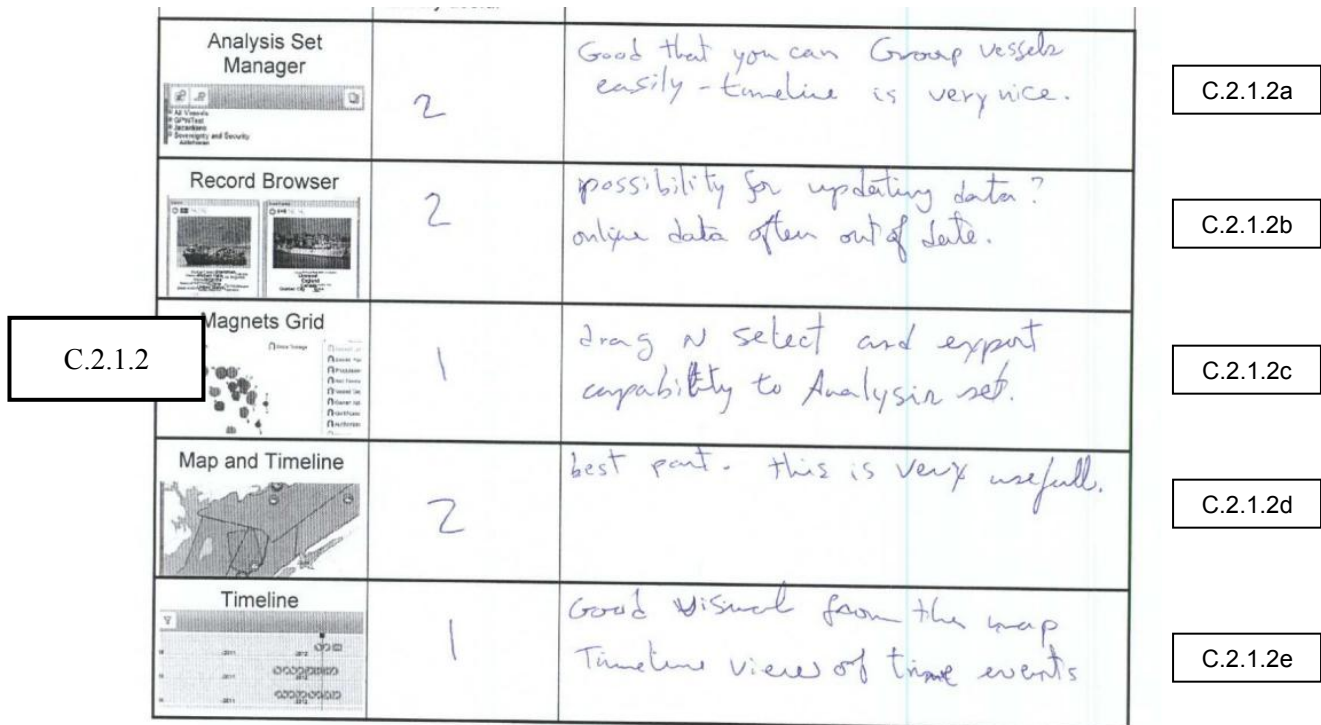 Analysis Set
Manager
All Vessels
Sovereignty and Security
2
Good that you can Group vessels
easily - timeline is very nice.
C.2.1.2a
Record Browser
2
possibility for updating data?
online data often out of date.
C.2.1.2b
C.2.1.2
Magnets Grid
1
drag N select and export
capability to Analysis set.
C.2.1.2c
Map and Timeline
2
best part. this is very usefull.
C.2.1.2d
Timeline
2011
2012
2011
2012
2011
2012
1
Good visual from the map
Timeline view of time events
C.2.1.2e